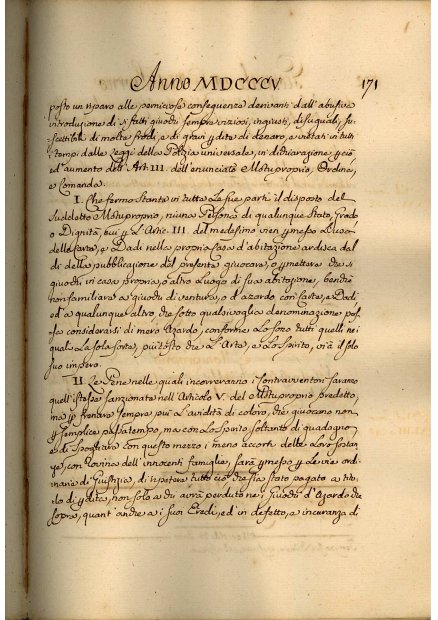 Anno MDCCCV 171
posto un riparo alle perniciose conseguenze derivanti dall' abusiva
introduzione di sì fatti giuochi sempre viziosi, ingiusti, disuguali, su-
scettibili di molte frodi, e di gravi perdite di denaro, e vietati in tutti
i tempi dalle Leggi della Polizia universale, in dichiarazione,
ed' aumento dell' Art: III. dell' enunciato Motuproprio, Ordina,
e Comanda.
I. Che ferma stante in tutte le sue parti il disposto del
suddetto Motuproprio, niuna Persona di qualunque Stato, Grado
o Dignità, cui per l' Artic: III. del medesimo vien permesso l'uso
delle Carte, e Dadi nella propria Casa d'abitazione ardisca dal
dì della pubblicazione del presente giuocare, o permettere che si
giuochi in casa propria, o altro Luogo di sua abitazione, benchè
non familiare a' giuochi di ventura, o d' azardo con Carte, e Dadi
ed' a qualunque altro, che sotto qualsivoglia denominazione pos-
sa considerarsi di mero Azardo, conforme lo sono tutti quelli nei
quali la sola sorte, piuttosto che l' Arte, e lo Spirito, vi à il solo
suo impero.
II. Le Pene nelle quali incorreranno i Contravventori saranno
quell' istesse sanzionate nell' Articolo V. del Motuproprio predetto,
ma per frenare sempre più l' avidità di coloro, che giuocano non
per semplice passatempo, ma con lo Spirito soltanto di guadagno,
e di spogliare con questo mezzo i meno accorti delle loro sostan-
ze, con rovina dell' innocenti famiglie, sarà permesso per le vie ordi-
narie di Giustizia, di ripetere tutto ciò, che sia stato pagato a tito-
lo di perdita, non solo a chi avrà perduto nei Giuochi d' Azardo che
sopra, quant' anche a i suoi Eredi, ed' in difetto, e incuranza di